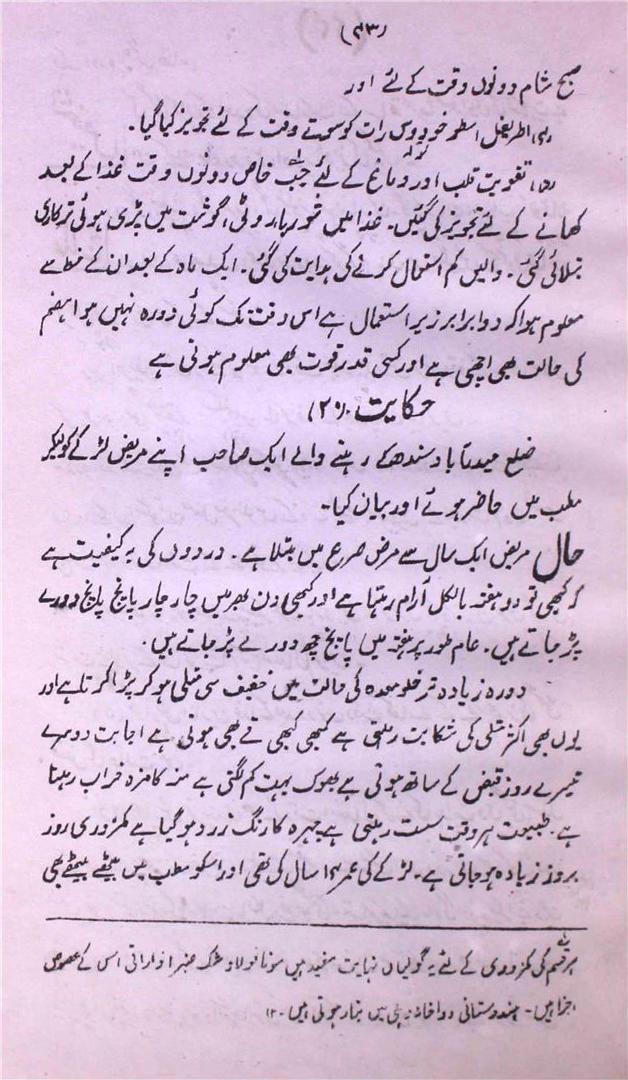 (۴۳)
صبح شام دونوں وقت کے لئے اور
(۴) اطریفل اسطوخودوس رات کو سوتے وقت کے لئے تجویز کیا گیا۔
(۵) تقویت قلب اور دماغ کے لئے حب خاص دونوں وقت غذا کے بعد
کھانے کے لئے تجویز کی گئیں۔ غذا میں شوربا روٹی، گوشت میں پڑی ہوئی ترکاری
بتلائی گئی۔ دالیں کم استعمال کرنے کی ہدایت کی گئی۔ ایک ماہ کے بعد ان کے خط سے
معلوم ہوا کہ دوا برابر زیر استعمال ہے اس وقت تک کوئی دورہ نہیں ہوا ہضم
کی حالت بھی اچھی ہے اور کسی قدر قوت بھی معلوم ہوتی ہے
حکایت (۲۰)
ضلع حیدرآباد سندھ کے رہنے والے ایک صاحب اپنے مریض لڑکے کو لیکر
مطب میں حاضر ہوئے اور بیان کیا۔
حال مریض ایک سال سے مرض صرع میں مبتلا ہے۔ دردوں کی یہ کیفیت ہے
کہ کبھی تو دو ہفتہ بالکل آرام رہتا ہے اور کبھی دن بھر میں چار چار پانچ پانچ دورے
پڑ جاتے ہیں۔ عام طور پر ہفتہ میں پانچ چھ دورے پڑ جاتے ہیں۔
دورہ زیادہ تر خلو معدہ کی حالت میں خفیف سی متلی ہو کر پڑا کرتا ہے اور
یوں بھی اکثر متلی کی شکایت رہتی ہے کبھی کبھی قے بھی ہوتی ہے اجابت دوسرے
تیسرے روز قبض کے ساتھ ہوتی ہے بھوک بہت کم لگتی ہے منہ کا مزہ خراب رہتا
ہے۔ طبیعت ہر وقت سست رہتی ہے چہرہ کا رنگ زرد ہو گیا ہے کمزوری روز
بروز زیادہ ہو جاتی ہے۔ لڑکے کی عمر ۱۴ سال کی تھی اور اسکو مطب میں بیٹھے بیٹھے بھی
ہر قسم کی کمزوری کے لئے یہ گولیاں نہایت مفید ہیں سونا فولاد مشک عنبر اذاراقی اس کے مخصوص
اجزا ہیں۔ ہندوستانی دواخانہ دہلی میں تیار ہوتی ہیں۔ ۱۲